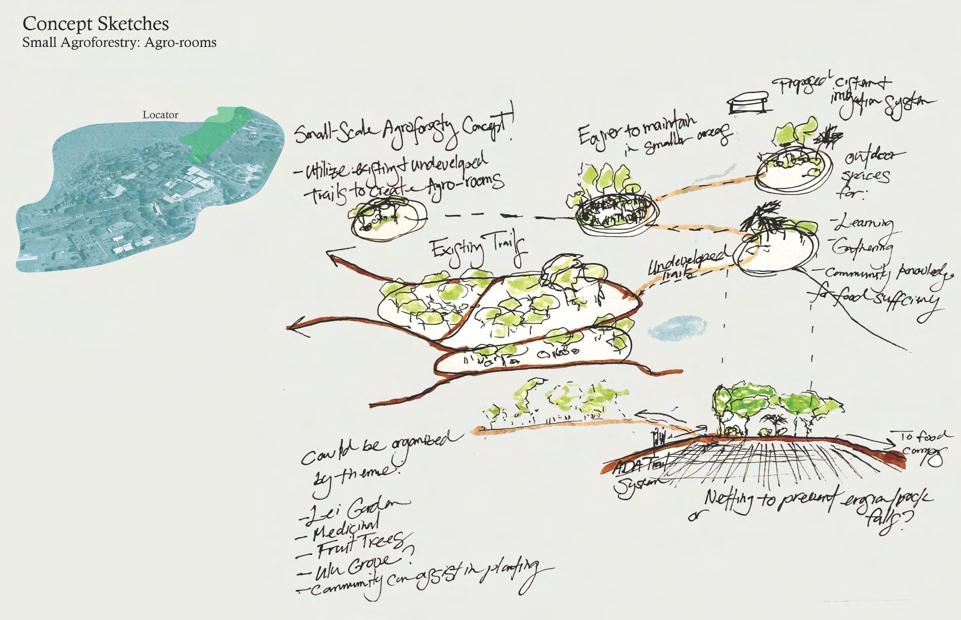 Concept Sketches
Small Agroforestry: Agro-rooms
Locator
Small-Scale Agroforestry Concept!
- Utilize existing & undeveloped
Trails to create Agro-rooms
Easier to maintain
in smaller areas
Proposed cistern &
irrigation system
outdoor
spaces
for:
- Learning
- Gathering
- Community knowledge
for food sufficiency
Existing Trails
Undeveloped
Trails
Could be organized
by theme:
- Lei Garden
- Medicinal
- Fruit Trees
- Ulu Grove?
- Community can assist in planting
ADA Trail
System
To food
Netting to prevent erosion/rock
or falls?